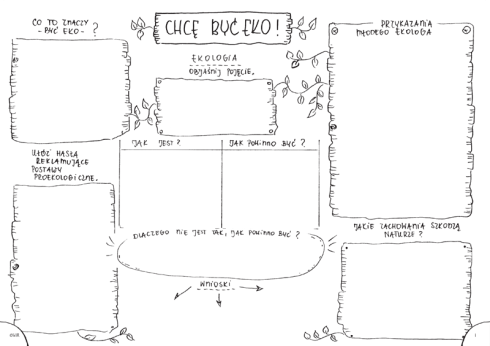 CHCĘ BYĆ EKO!
CO TO ZNACZY
- BYĆ EKO - ?
EKOLOGIA
OBJAŚNIJ POJĘCIE.
PRZYKAZANIA
MŁODEGO EKOLOGA
JAK JEST?
JAK POWINNO BYĆ?
UŁÓŻ HASŁA
REKLAMUJĄCE
POSTAWY
PROEKOLOGICZNE.
DLACZEGO NIE JEST TAK, JAK POWINNO BYĆ?
WNIOSKI
JAKIE ZACHOWANIA SZKODZĄ
NATURZE?